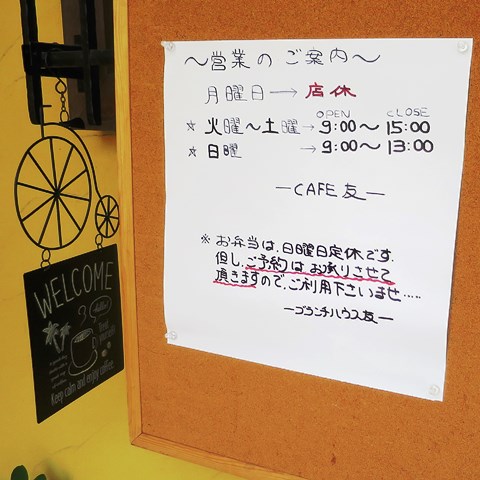 ～営業のご案内～
月曜日→店休
OPEN CLOSE
☆火曜～土曜→9:00～15:00
☆日曜→9:00～13:00
—CAFE 友—
※お弁当は、日曜日定休です。
但し、ご予約はお承りさせて
頂きますので、ご利用下さいませ.....
—ブランチハウス友—
WELCOME
Keep calm and enjoy coffee.